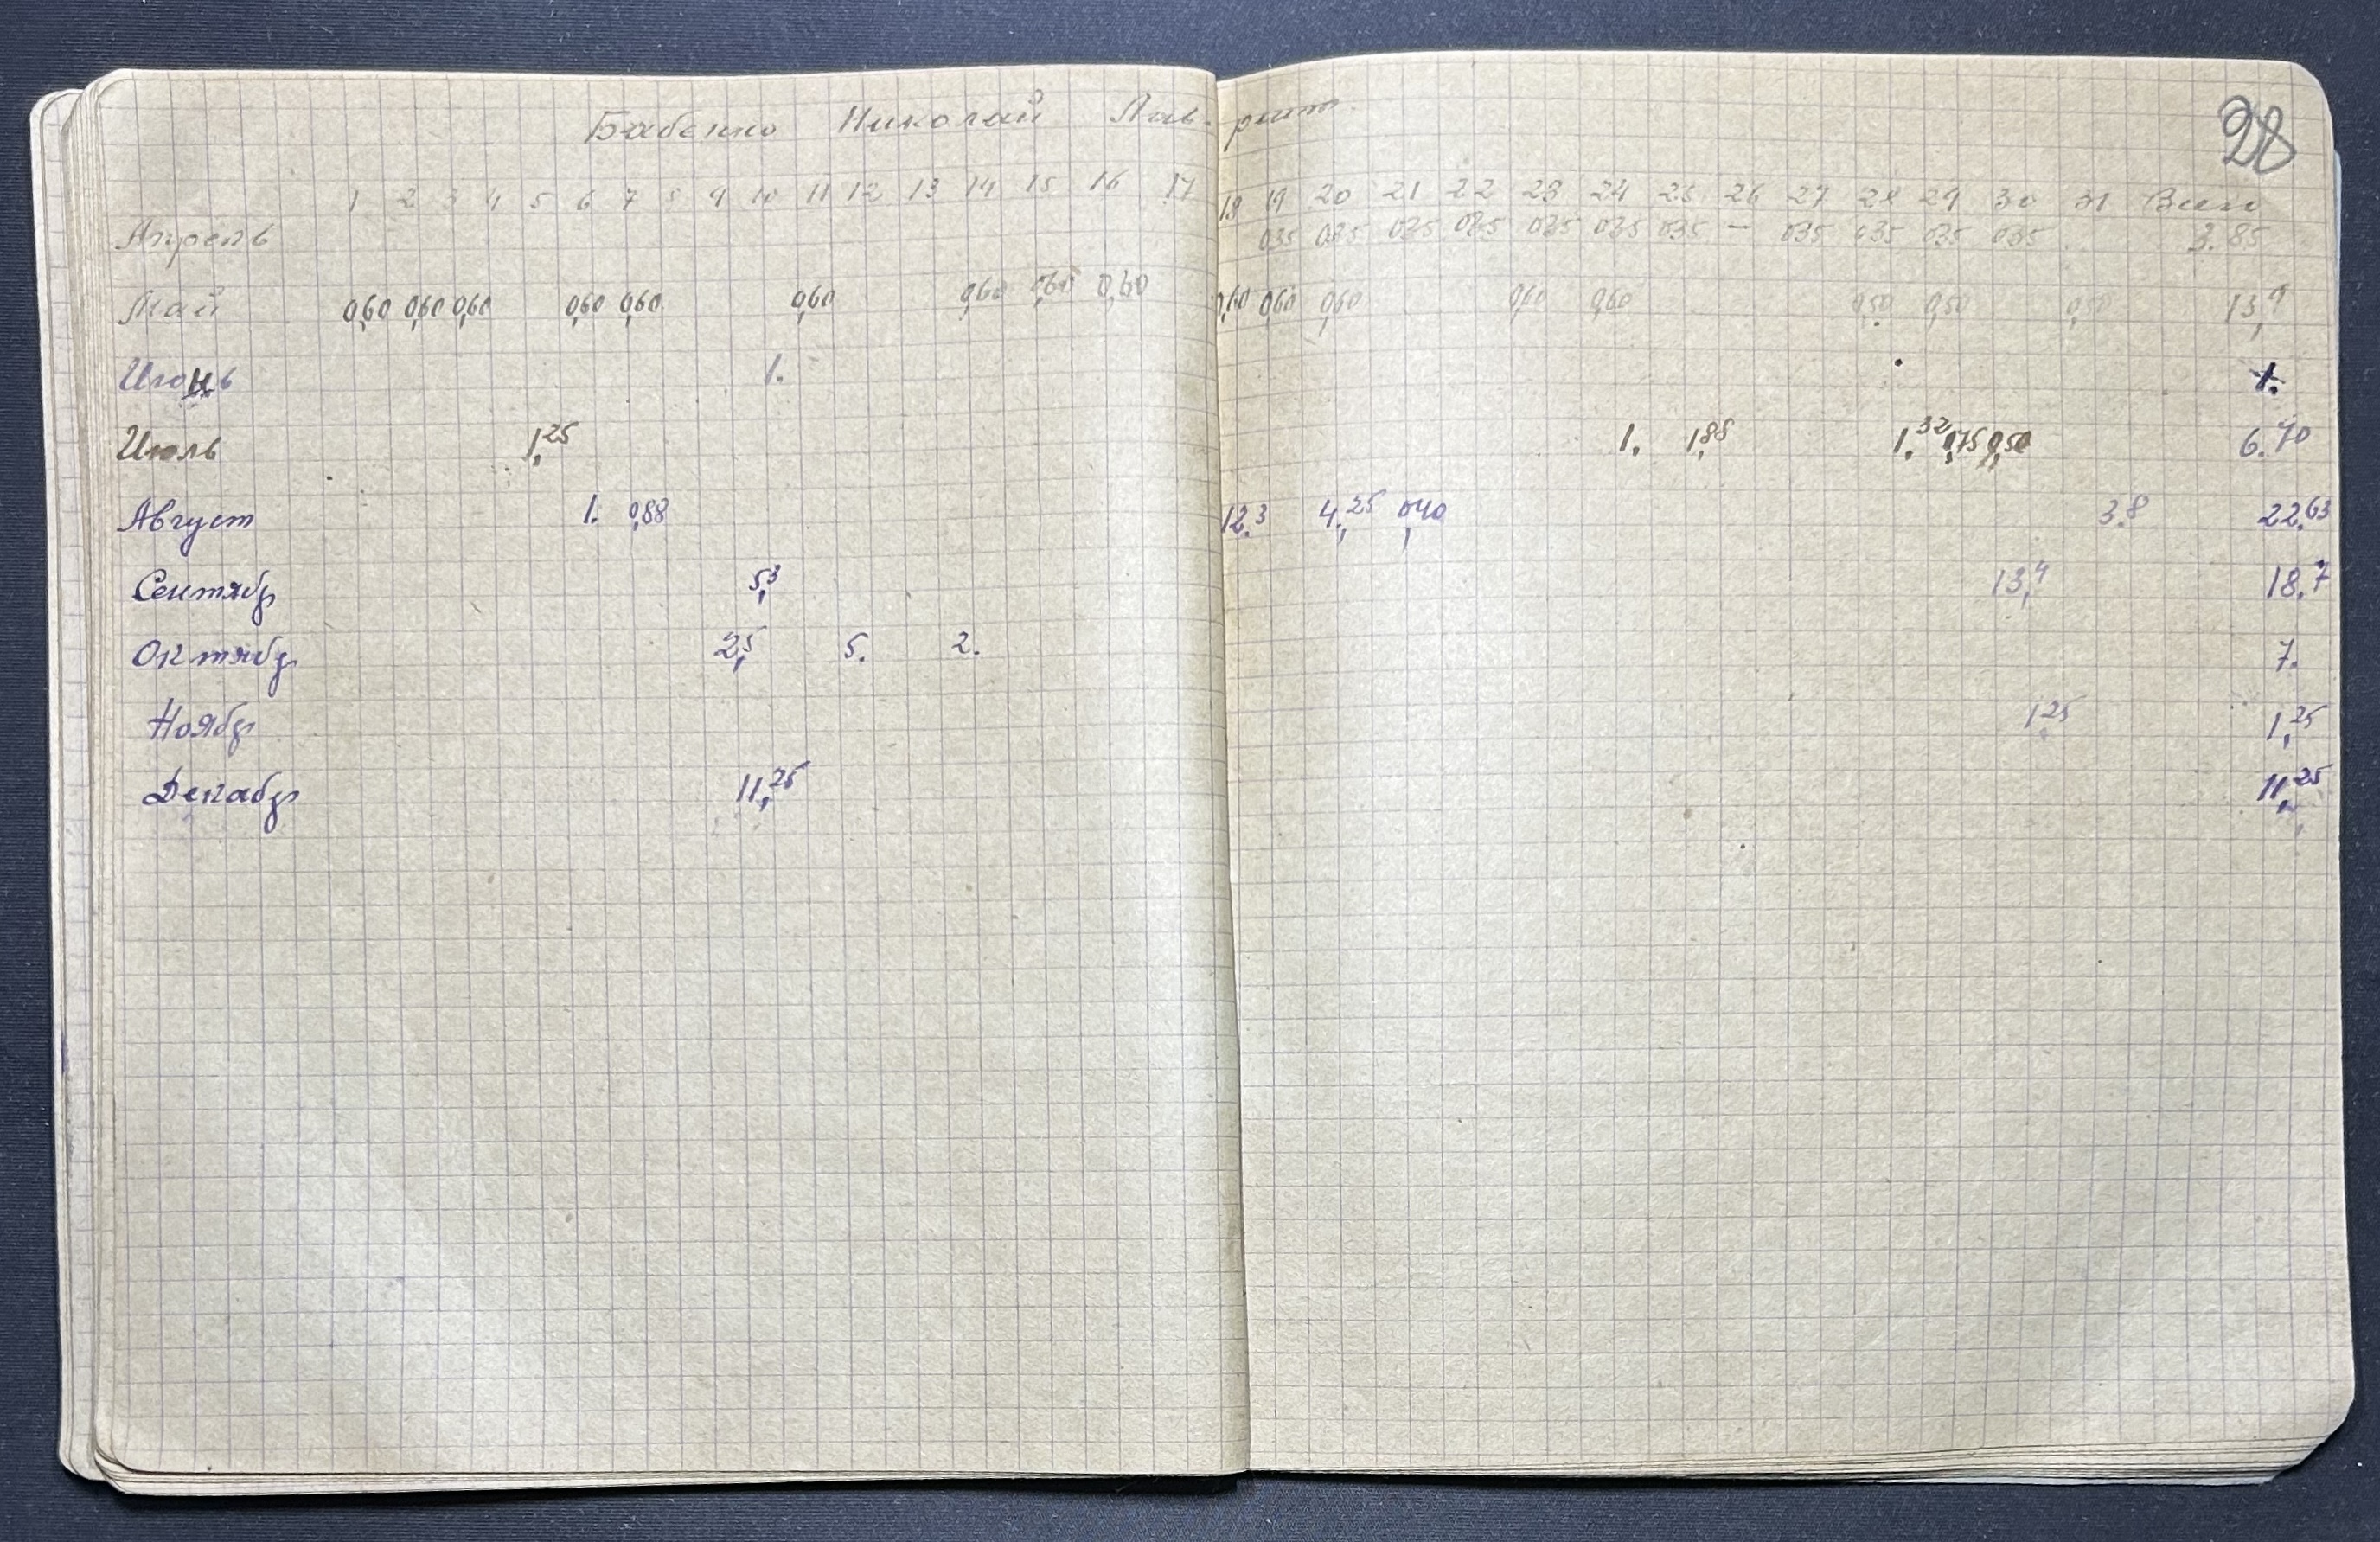 Бабенко Николай Лав-рит.
28
1 2 3 4 5 6 7 8 9 10 11 12 13 14 15 16 17 18 19 20 21 22 23 24 25 26 27 28 29 30 31 Всего
Апрель 035 035 035 035 035 035 035 — 035 035 035 035 3.85
Май 0,60 0,60 0,60 0,60 0,60 0,60 0,60 0,60 0,60 0,60 0,60 0,60 0,60 0,60 0,50 0,50 0,50 13,9
Июнь 1. 1.
Июль 1,25 1. 1,88 1,32 0,75 0,50 6.70
Август 1. 0,88 12.3 4,25 040 3.8 22,63
Сентябр 5,3 13,4 18.7
Октябр 2,5 5. 2. 7.
Ноябр 1,25 1,25
Декабр 11,25 11,25